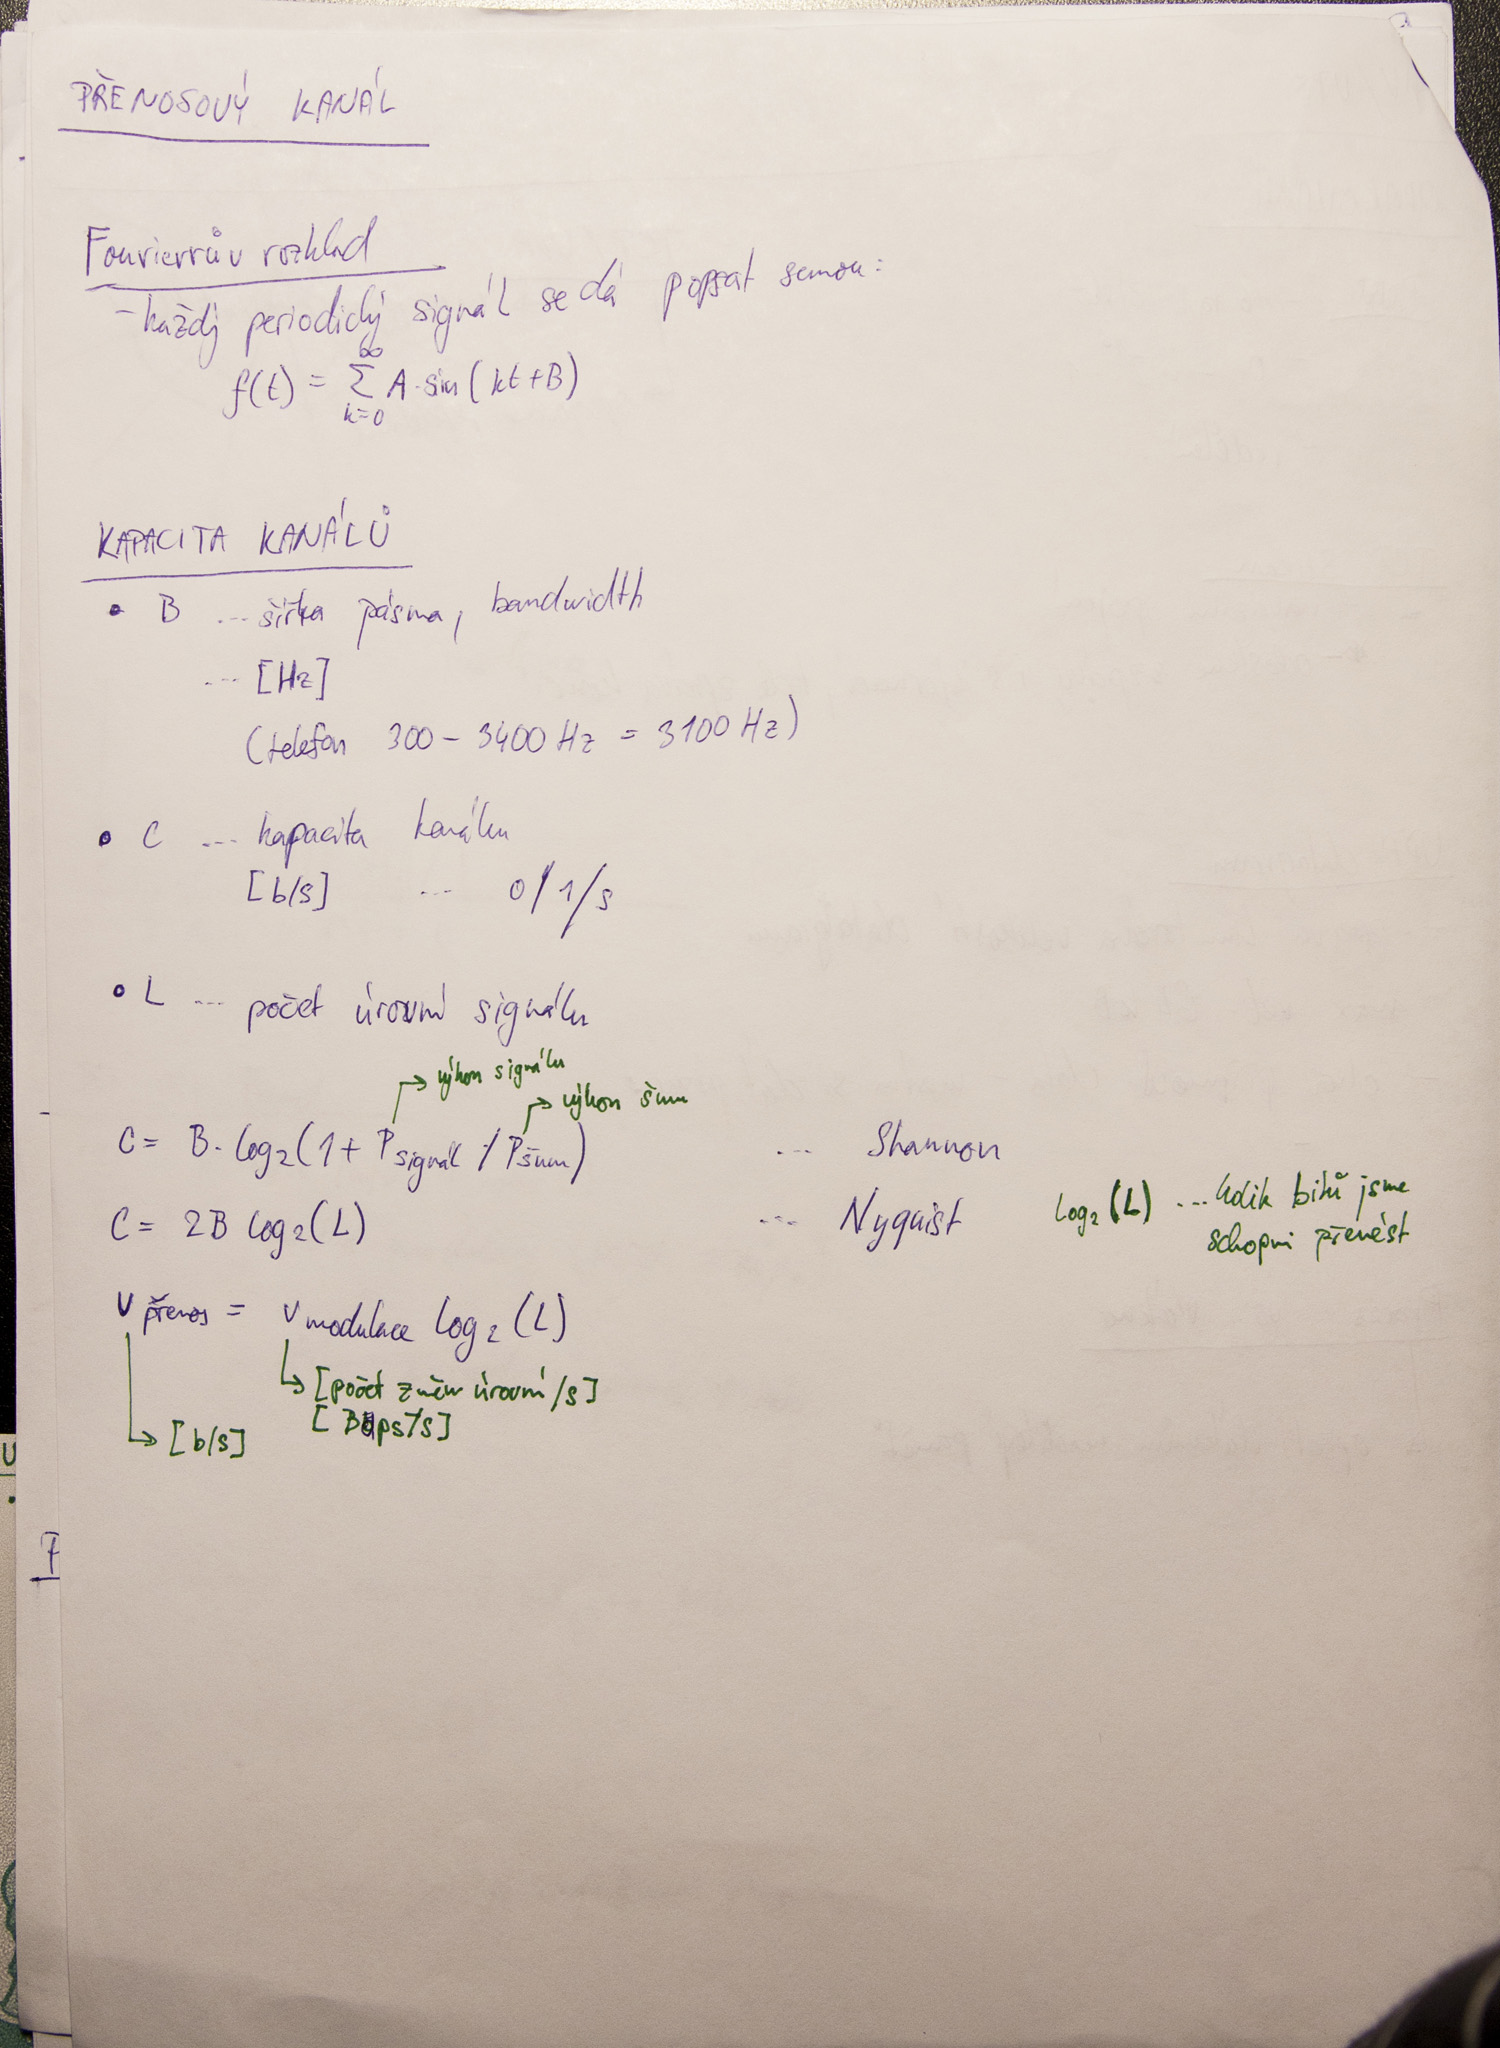 PŘENOSOVÝ KANÁL
Fourierrův rozklad
- každý periodický signál se dá popsat sumou:
f(t) = ∑ A·sin(kt+B)
∞
k=0
KAPACITA KANÁLŮ
• B ... šířka pásma, bandwidth
... [Hz]
(telefon 300 - 3400 Hz = 3100 Hz)
• C ... kapacita kanálu
[b/s] ... 0/1/s
• L ... počet úrovní signálu
→ výkon signálu
→ výkon šumu
C = B · log₂(1 + P signál / P šum) ... Shannon
C = 2B log₂(L) ... Nyquist log₂(L) ... kolik bitů jsme
schopni přenést
v přenos = v modulace log₂(L)
→ [počet změn úrovní/s]
→ [b/s]
7
U